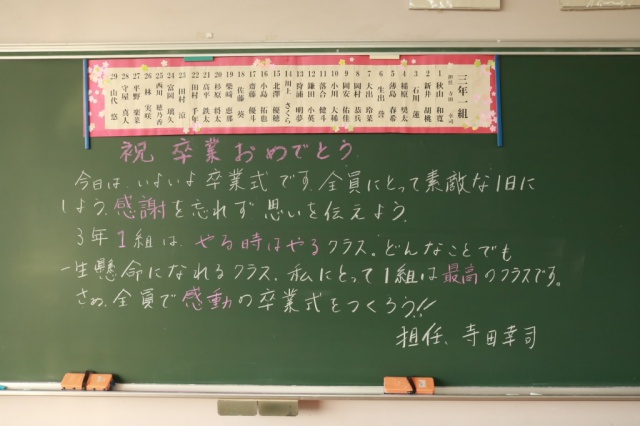 三年一組
担任 寺田 幸司
1 秋山 和寛
2 新井 胡桃
3 石川 蓮
4 糠原 奨太
5 落合 寿希
6 生出 啓
7 大出 玲菜
8 岡村 恭兵
9 岡安 佑佳
10 小川 大稀
11 落合 健斗
12 鎌田 小英
13 狩浦 明夢
14 川上 さくら
15 北澤 優穂
16 小島 拓也
17 斎藤 優
18 佐藤 葵
19 柴崎 恵那
20 杉原 将太
21 高平 鉄太
22 田村 千年
23 田村 涼
24 富岡 瑞久
25 西川 穂乃香
26 林 実咲
27 平野 楽菜
28 守屋 真人
29 山代 悠
祝 卒業おめでとう
今日は、いよいよ卒業式です。全員にとって素敵な1日に
しよう。感謝を忘れず思いを伝えよう。
3年1組は、やる時はやるクラス。どんなことでも
一生懸命になれるクラス。私にとって1組は最高のクラスです。
さぁ、全員で感動の卒業式をつくろう!!
担任、寺田幸司